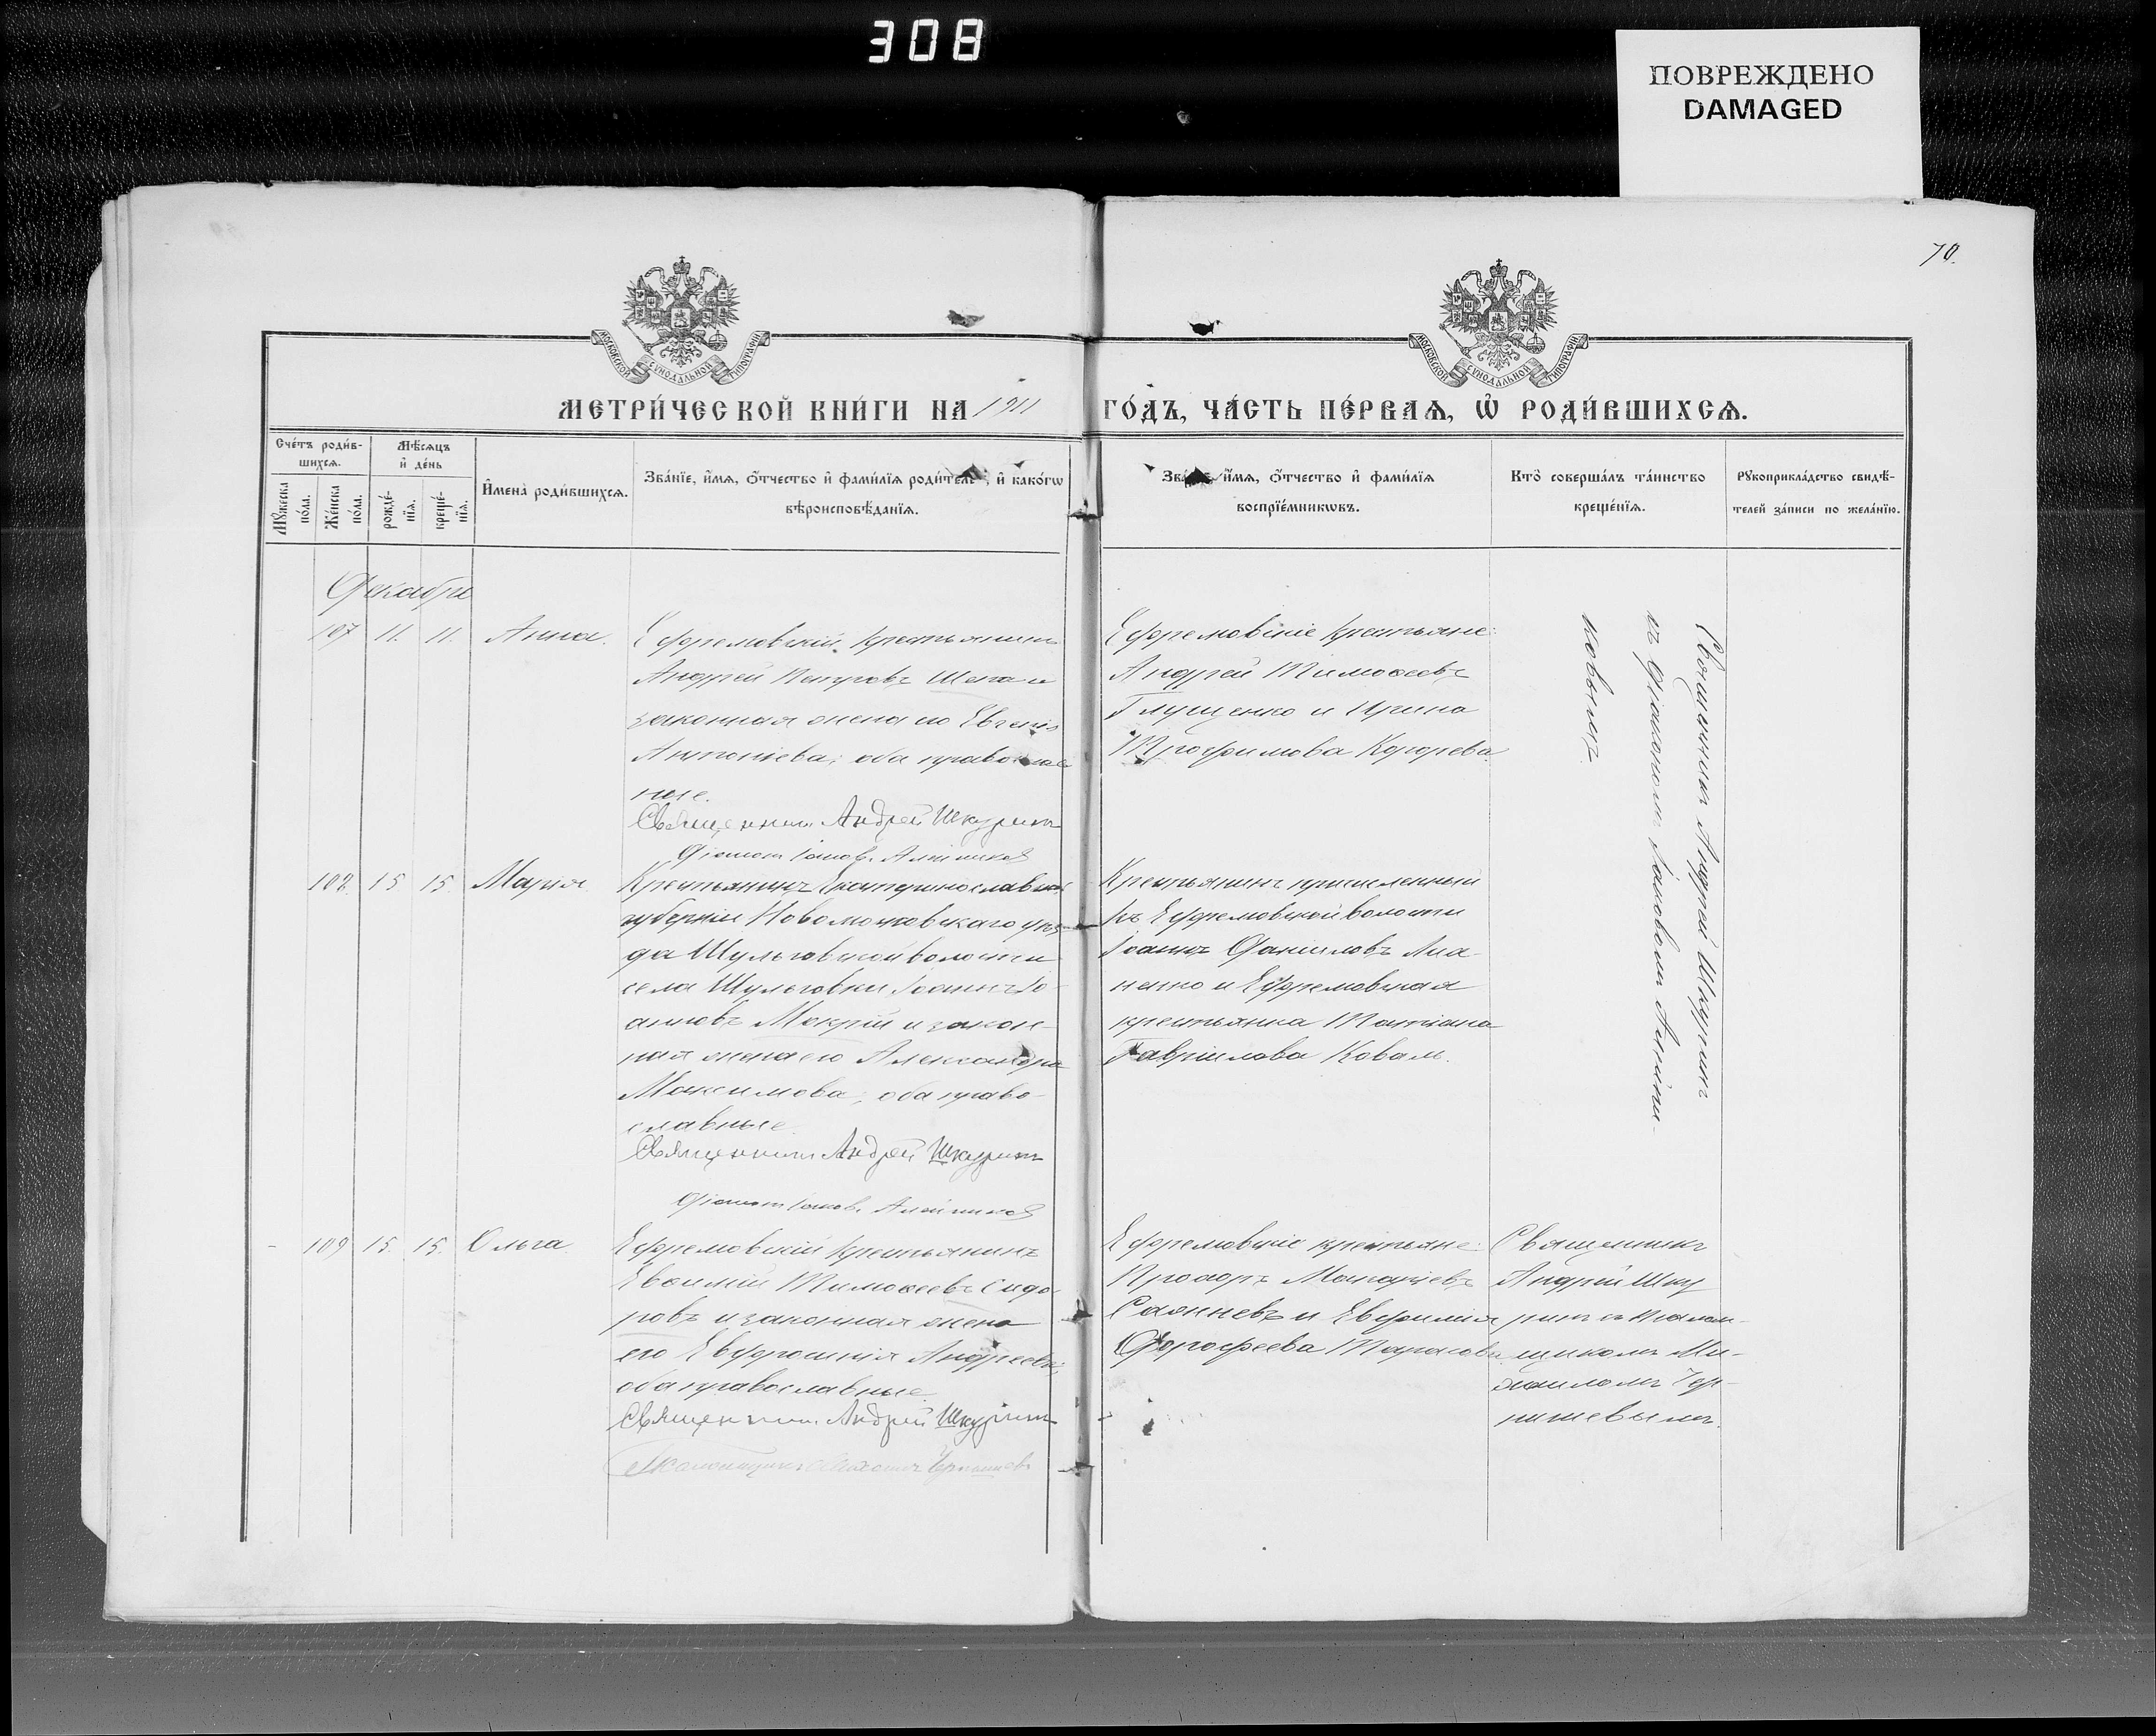 308
ПОВРЕЖДЕНО
DAMAGED
70.
МОСКОВСКОЙ СУНОДАЛЬНОЙ ТИПОГРАФІИ
МОСКОВСКОЙ СУНОДАЛЬНОЙ ТИПОГРАФІИ
МЕТРИ́ЧЕСКОЙ КНИ́ГИ НА 1911 ГО́ДЪ, ЧА́СТЬ ПЕ́РВАѦ, Ѡ҆ РОДИ́ВШИХСѦ.
Сче́тъ роди́в-
шихсѧ.
Мꙋ́жеска по́ла.
Же́нска по́ла.
Мѣ́сѧцъ
и҆ де́нь
рожде́-
нїѧ.
креще́-
нїѧ.
И҆мена̀ роди́вшихсѧ.
Зва́нїе, и҆́мѧ, ѻ҆́тчество и҆ фами́лїѧ роди́тел , и҆ како́гѡ
вѣроисповѣ́данїѧ.
Зва́ , и҆́мѧ, ѻ҆́тчество и҆ фами́лїѧ
воспрїе́мникѡвъ.
Кто̀ соверша́лъ та́инство
креще́нїѧ.
Рꙋкоприкла́дство свидѣ́-
телей за́писи по жела́нїю.
Декабря
107 11. 11. Анна.
Ефремовскій крестьянинъ
Андрей Петровъ Шепа и
законная жена его Евгенія
Антоніева; оба православ
ные.
Священникъ Андрей Шкуринъ
Діаконъ Іаковъ Алейников
Ефремовскіе крестьяне:
Андрей Тимоѳеевъ
Глущенко и Ирина
Трофимова Кодорева.
Священникъ Андрей Шкуринъ
съ діакономъ Іаковомъ Алейни-
ковымъ.
108. 15 15. Марія
Крестьянинъ Екатеринославской
губерніи Новомосковскаго уѣз
да Шульговской волости
села Шульговки Іоаннъ Іо-
анновъ Мокрій и закон-
ная жена его Александра
Максимова; оба право-
славные.
Священникъ Андрей Шкуринъ
Діаконъ Іаковъ Алейников
Крестьянинъ приписленный
къ Ефремовской волости
Іоаннъ Даніиловъ Лиа-
ненко и Ефремовская
крестьянка Татіана
Гавріилова Коваль.
109 15. 15. Ольга.
Ефремовскій крестьянинъ
Евѳимій Тимоѳеевъ Сидо-
ровъ и законная жена
его Евфросинія Андреева;
оба православные.
Священникъ Андрей Шкуринъ
Псаломщикъ Михаилъ Чернышевъ
Ефремовскіе крестьяне:
Прохоръ Макаріевъ
Саянневъ и Евфимія
Дорофеева Тарасова
Священникъ
Андрей Шку
ринъ съ псалом-
щикомъ Ми-
хаиломъ Чер-
нышевымъ.